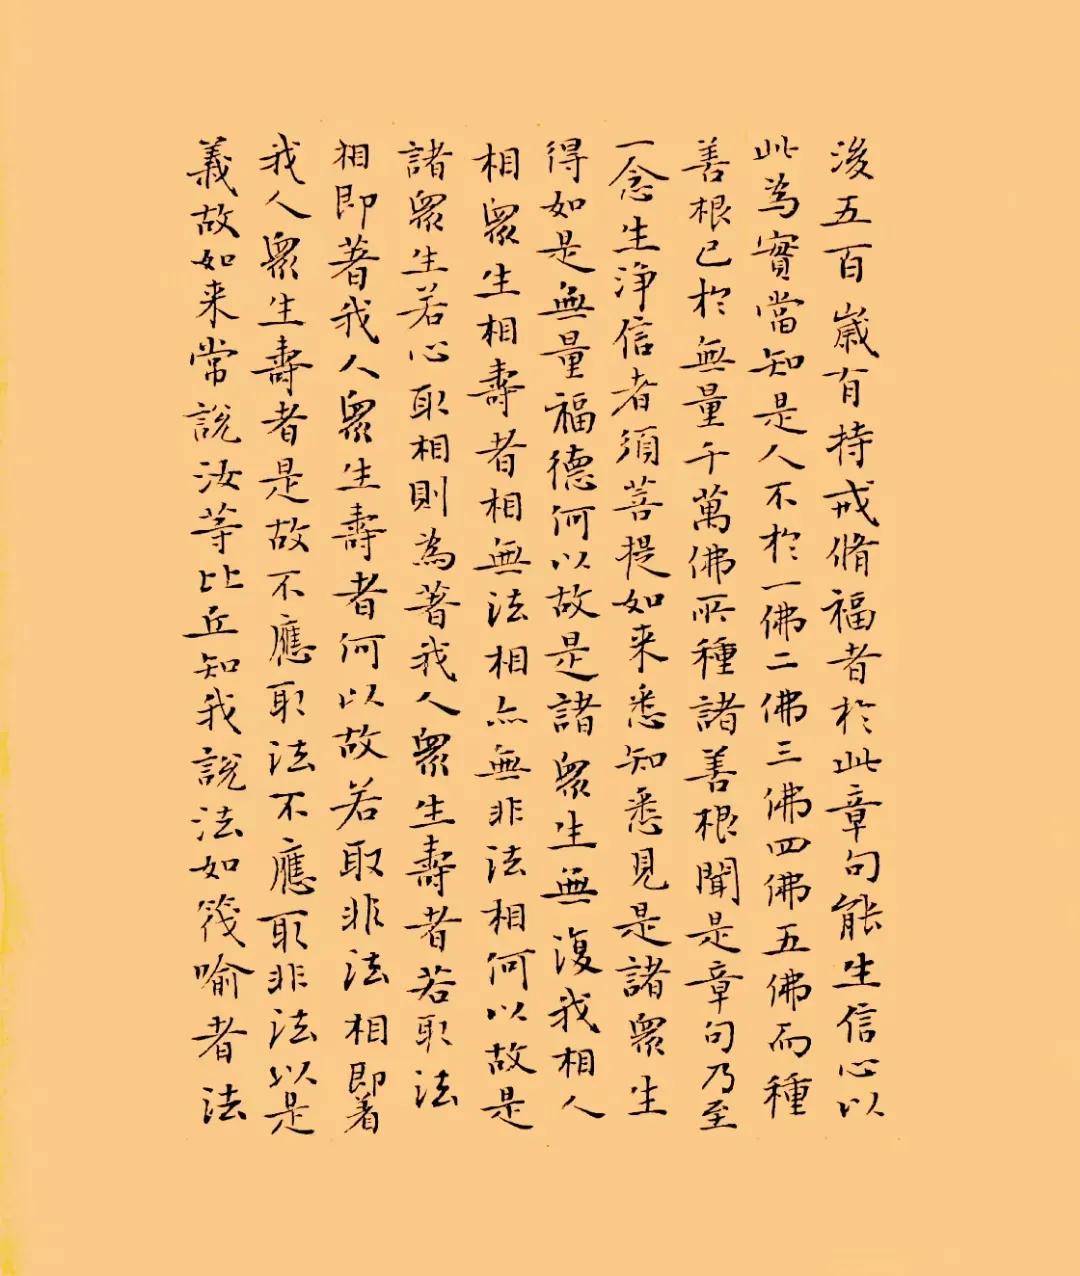 後五百歲有持戒脩福者於此章句能生信心以
此為實當知是人不於一佛二佛三佛四佛五佛而種
善根已於無量千萬佛所種諸善根聞是章句乃至
一念生淨信者須菩提如来悉知悉見是諸眾生
得如是無量福德何以故是諸眾生無復我相人
相眾生相壽者相無法相亦無非法相何以故是
諸眾生若心取相則為著我人眾生壽者若取法
相即著我人眾生壽者何以故若取非法相即著
我人眾生壽者是故不應取法不應取非法以是
義故如来常說汝等比丘知我說法如筏喻者法